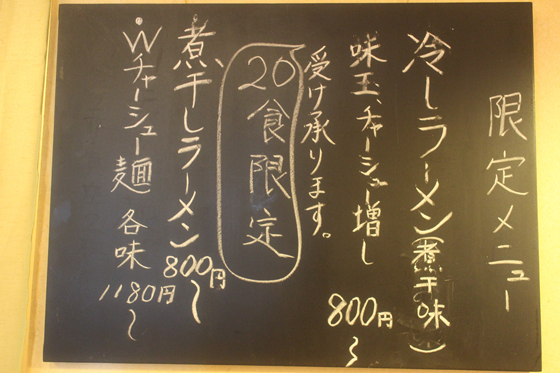 限定メニュー
冷しラーメン(煮干味)
800円〜
味玉、チャーシュー増し
受け承ります。
20食限定
煮干しラーメン
800円〜
Wチャーシュー麺 各味
1180円〜